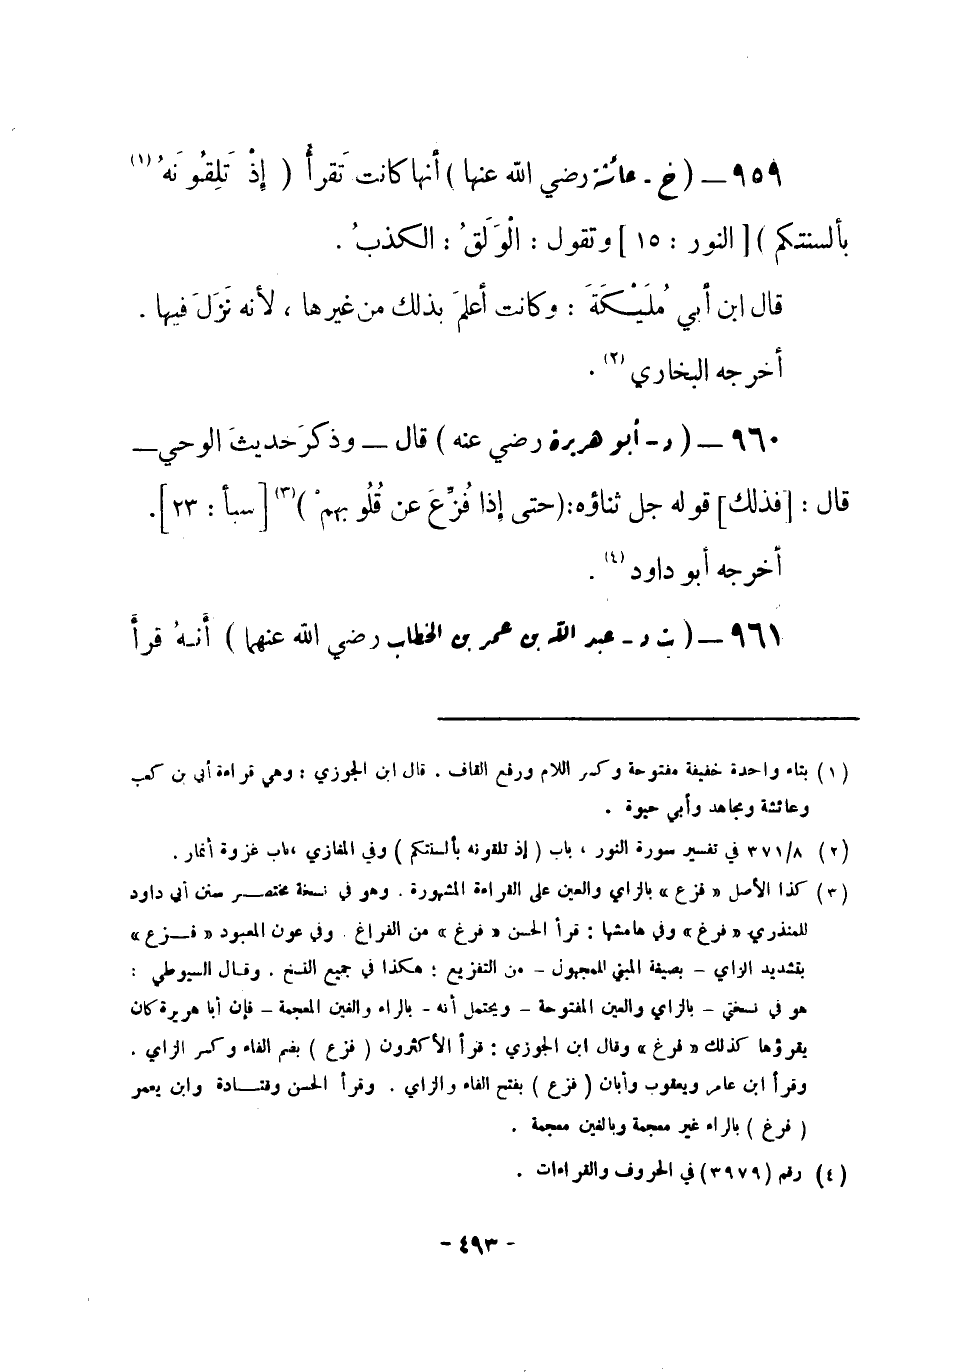 ٩٥٩ ــ ( خ ـ عائشة رضي الله عنها ) أنها كانت تَقرأُ ( إِذْ تَلِقُونَهُ (١)
بألسنتكم ) [ النور : ١٥ ] وتقول : الْوَلَقُ : الكذبُ .
قال ابن أبي مُلَيْكَةَ : وكانت أعلمَ بذلك من غيرها ، لأنه نَزَلَ فيها .
أخرجه البخاري (٢) .
٩٦٠ ــ ( د ـ أبو هريرة رضي عنه ) قال ــ وذكرَ حديثَ الوحي ــ
قال : [ فذلك ] قوله جل ثناؤه : (حتى إذا فُزِّعَ عن قُلُوبهمْ ) (٣) [ سبأ : ٢٣ ] .
أخرجه أبو داود (٤) .
٩٦١ ــ ( ت د ـ عبد الله بن عمر بن الخطاب رضي الله عنهما ) أَنـهُ قرأَ
(١) بتاء واحدة خفيفة مفتوحة وكسر اللام ورفع القاف . قال ابن الجوزي : وهي قراءة أبي بن كعب
وعائشة ومجاهد وأبي حيوة .
(٢) ٣٧١/٨ في تفسير سورة النور ، باب ( إذ تلقونه بألسنتكم ) وفي المغازي ، باب غزوة أنمار .
(٣) كذا الأصل « فزع » بالزاي والعين على القراءة المشهورة . وهو في نسخة مختصـر سنن أبي داود
للمنذري « فرغ » وفي هامشها : قرأ الحسن « فرغ » من الفراغ . وفي عون المعبود « فــزع »
بتشديد الزاي - بصيغة المبني للمجهول - من التفزيع : هكذا في جميع النسخ . وقـال السيوطي :
هو في نسختي - بالزاي والعين المفتوحة - ويحتمل أنه - بالراء والغين المعجمة - فإن أبا هريرة كان
يقرؤها كذلك « فرغ » وقال ابن الجوزي : قرأ الأكثرون ( فزع ) بضم الفاء وكسر الزاي .
وقرأ ابن عامر ويعقوب وأبان ( فزع ) بفتح الفاء والزاي . وقرأ الحسن وقتــادة وابن يعمر
( فرغ ) بالراء غير معجمة وبالغين معجمة .
(٤) رقم (٣٩٧٩) في الحروف والقراءات .
- ٤٩٣ -